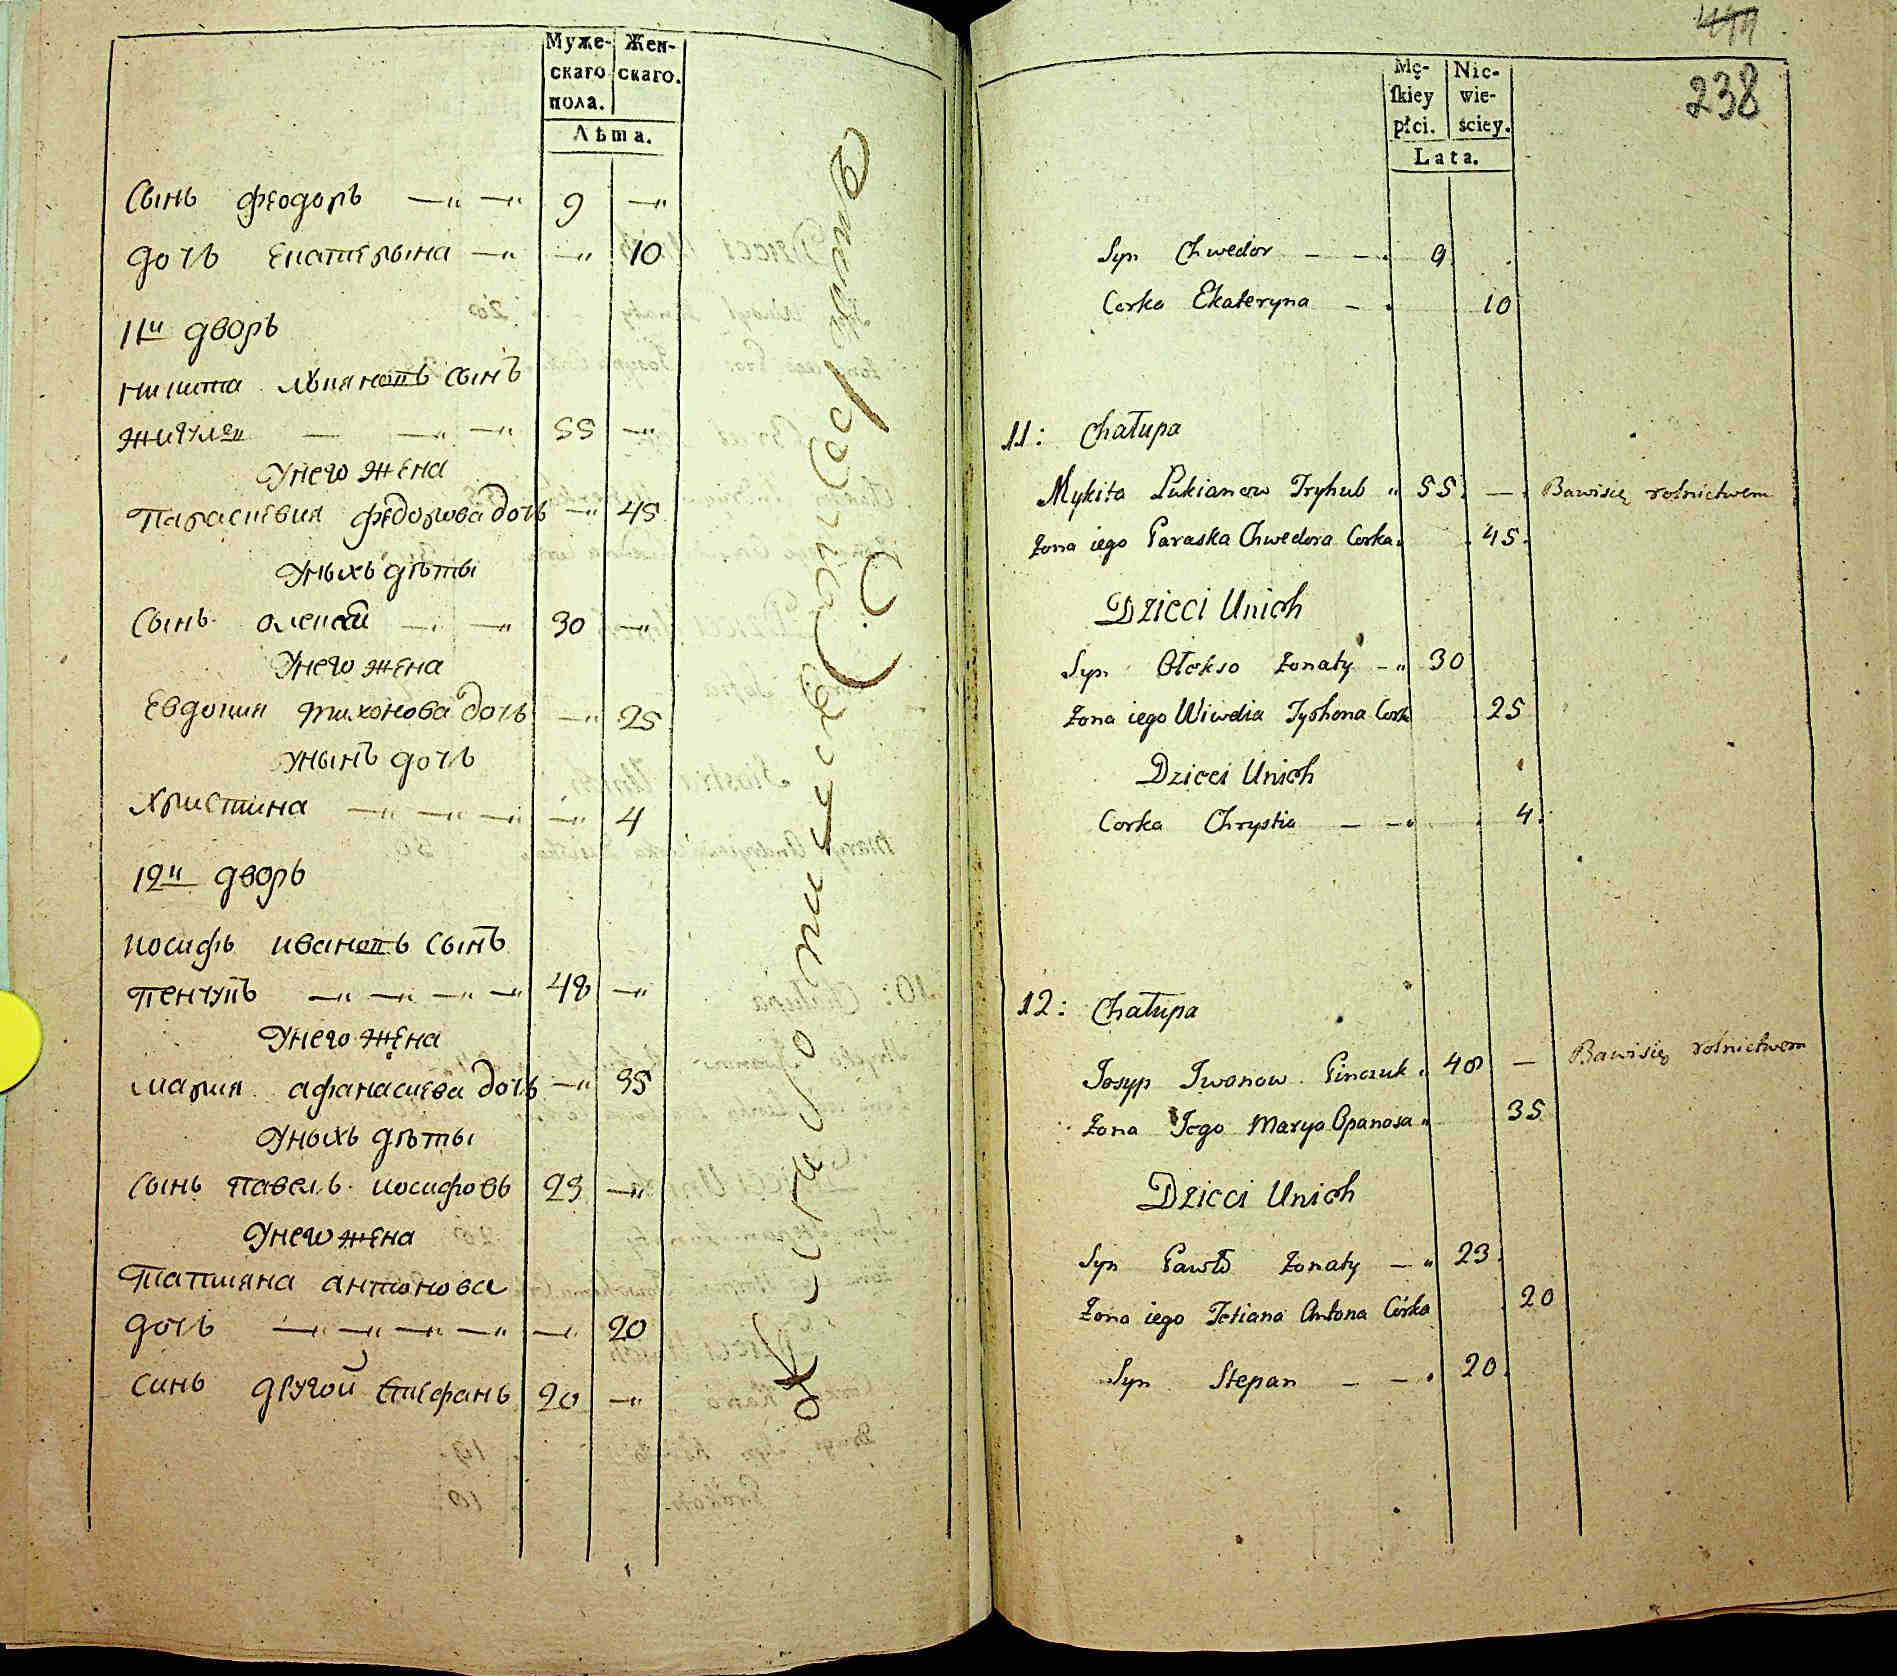 Муже-
скаго
пола.
Жен-
скаго.
Лѣта.
Сынъ Феодоръ 9
дочь Екатерына 10
11й дворъ
Никита Лукяновъ Сынъ
55
У него жена
Параскевия Федорова дочь 45
У ныхъ дѣты
Сынъ Олексѣй 30
У него жена
Евдокия Тихонова дочь 25
У нынъ дочь
Христина 4
12й дворъ
Иосифъ Ивановъ Сынъ
Пенчукъ 48
У него жена
Мария Афанасиева дочь 35
У ныхъ дѣты
Сынъ Павелъ Иосифовъ 23
У него жена
Татияна Антонова
дочь 20
Синъ другой Стефанъ 20
238
Mę-
skiey
płci.
Nie-
wie-
sciey.
Lata.
Syn Chwedor 9
Corka Ekateryna 10
11: Chałupa
Mykita Lukianow Tryhub 55 — Bawisię rolnictwem
Żona iego Paraska Chwedora Corka 45
Dzieci Unich
Syn Ołekso żonaty 30
Żona iego Wiwdia Tyshona Cork 25
Dzieci Unich
Corka Chrystia 4
12: Chałupa
Josyp Iwanow Pinczuk 48 — Bawisię rolnictwem
Żona Jego Marya Opanasa 35
Dzieci Unich
Syn Pawło żonaty 23
Żona iego Tetiana Antona Córka 20
Syn Stepan 20